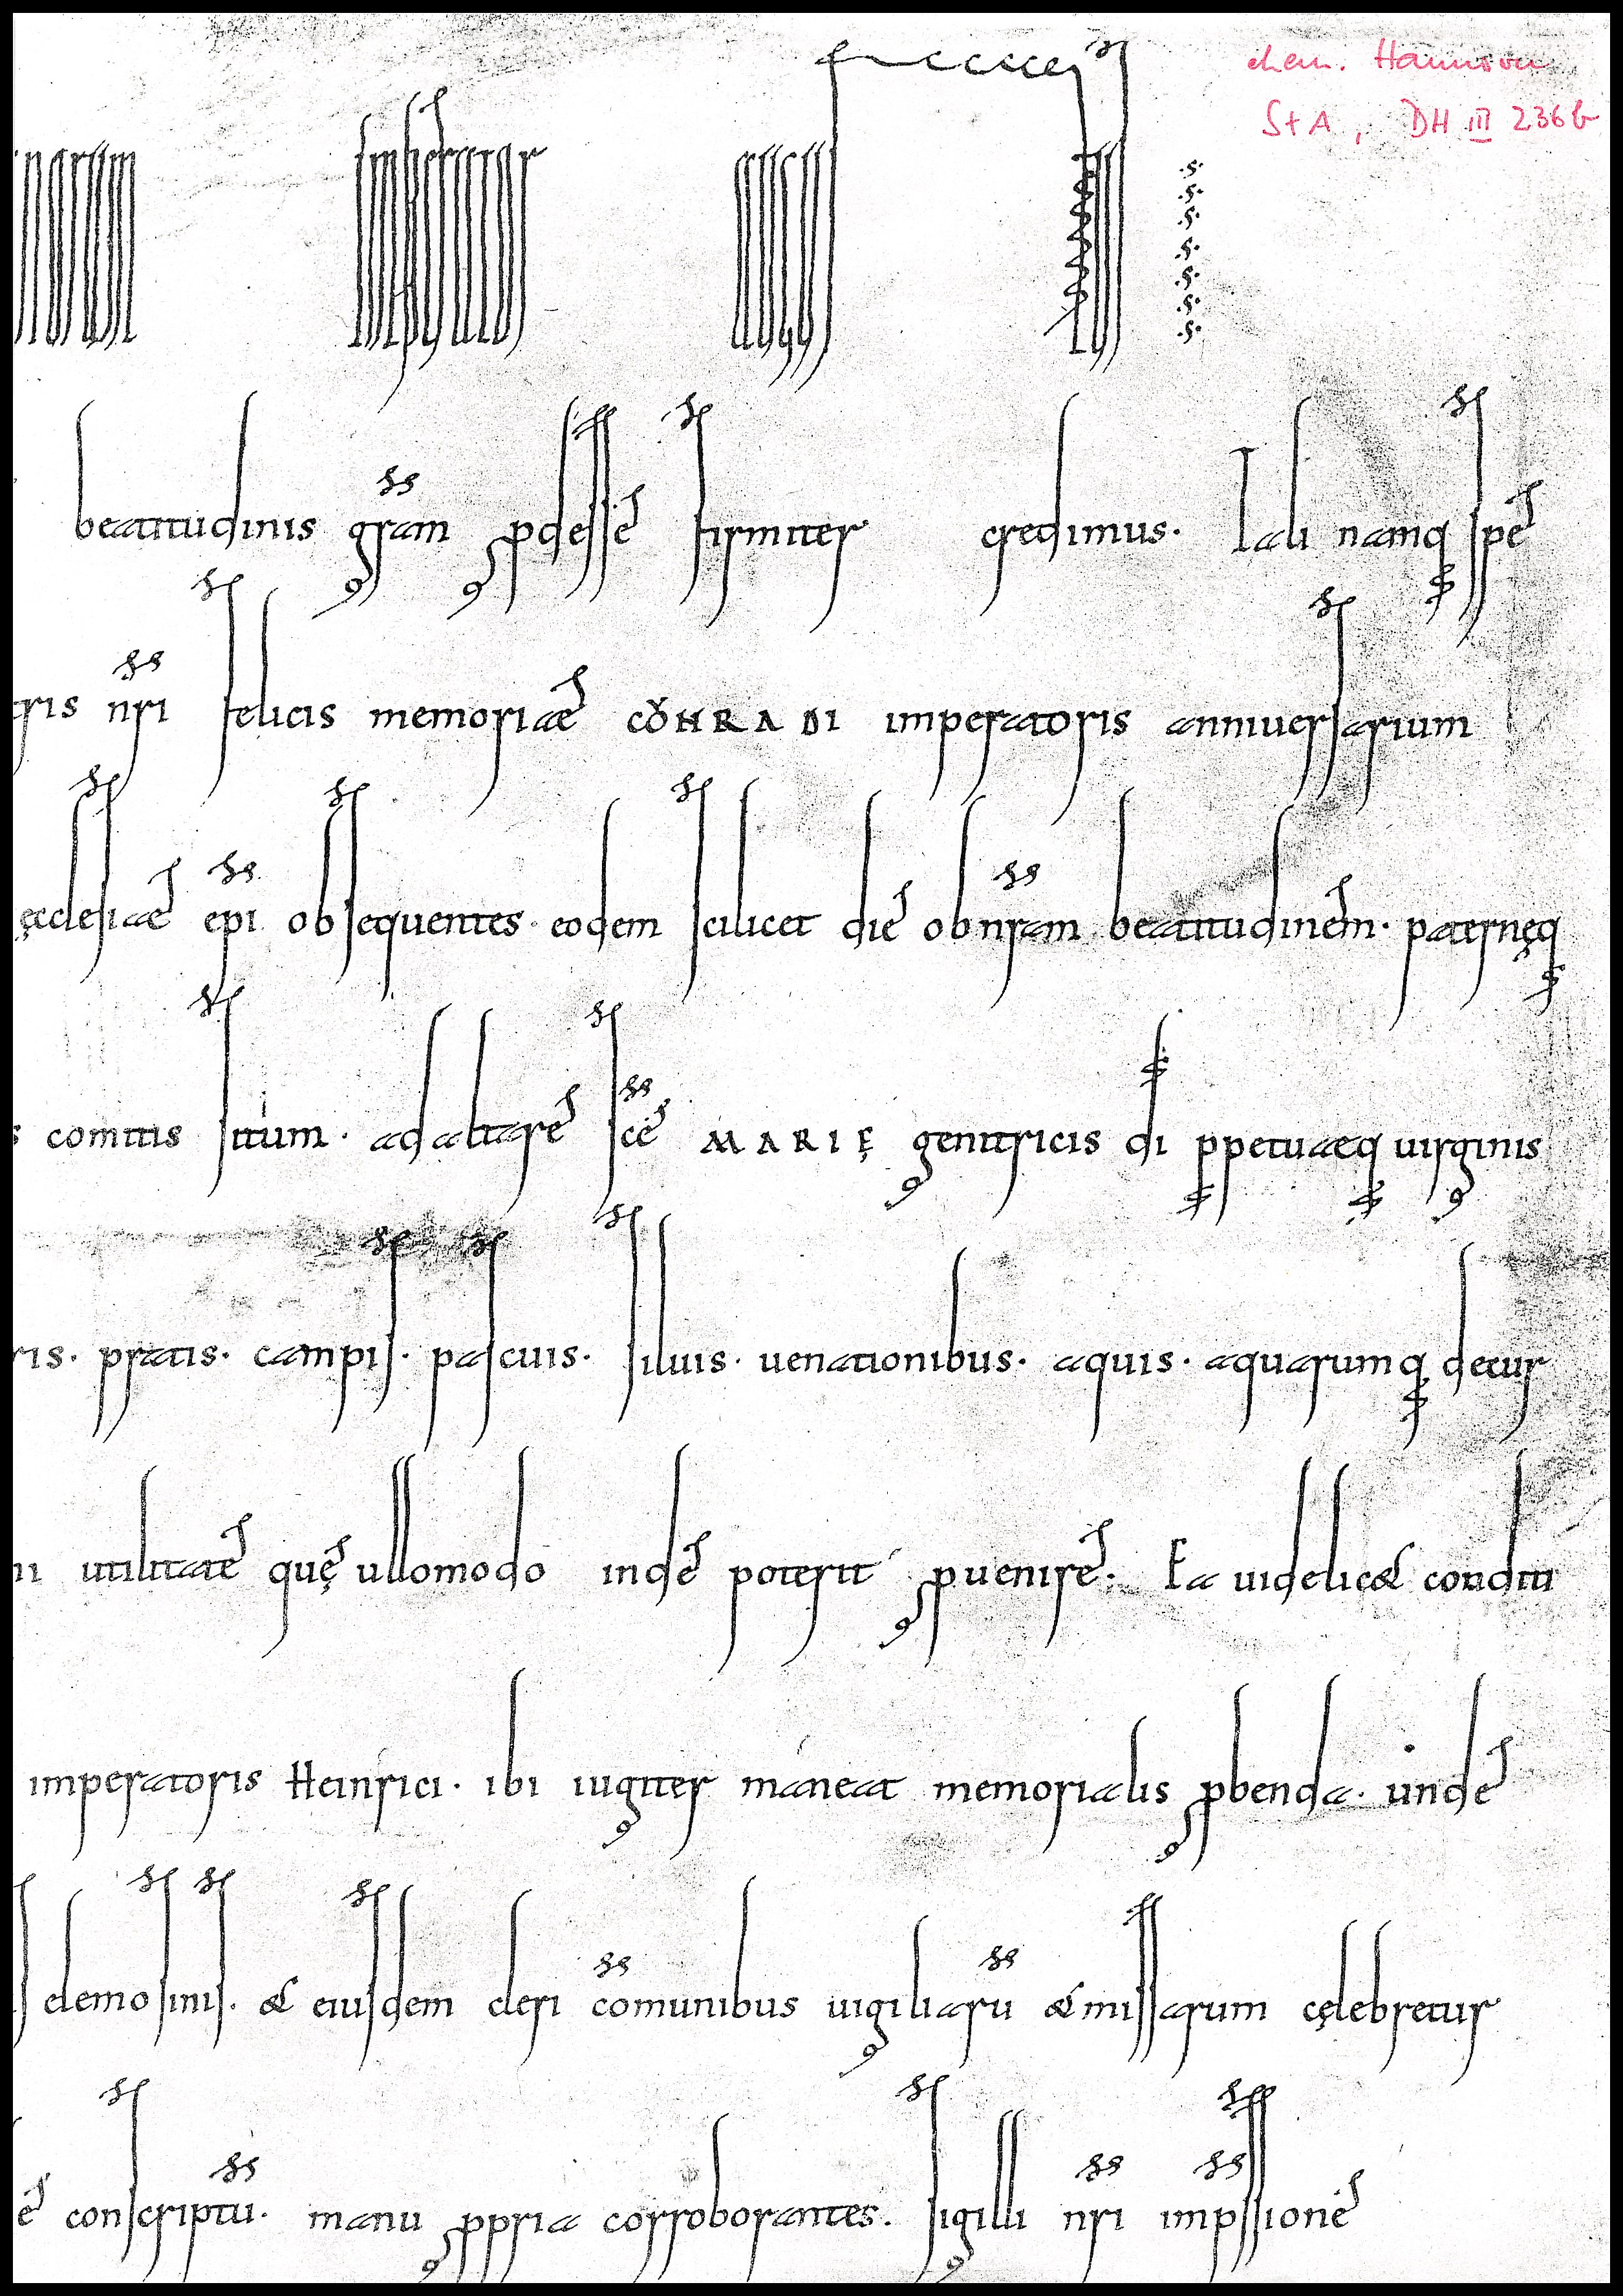 ehem. Hannover
StA, DH III 236b
imperator augus
beatitudinis gram pdesse firmiter credimus. Tali namq spe
nri felicis memoriae CǒHRADI imperatoris anniuersarium
ęcclesiae epi obsequentes. eodem scilicet die ob nram beatitudinem. paternęq
comitis situm. ad altare sce MARIĘ genitricis di ppetuaeq uirginis
pratis. campis. pascuis. siluis. uenationibus. aquis. aquarumq decur
utilitate quę ullomodo inde poterit puenire. Ea uidelicet conditi
imperatoris Heinrici. ibi iugiter maneat memorialis pbenda. unde
elemosinis. & eiusdem cleri comunibus uigiliaru & missarum cęlebretur
conscriptu. manu ppria corroborantes. sigilli nri impssione